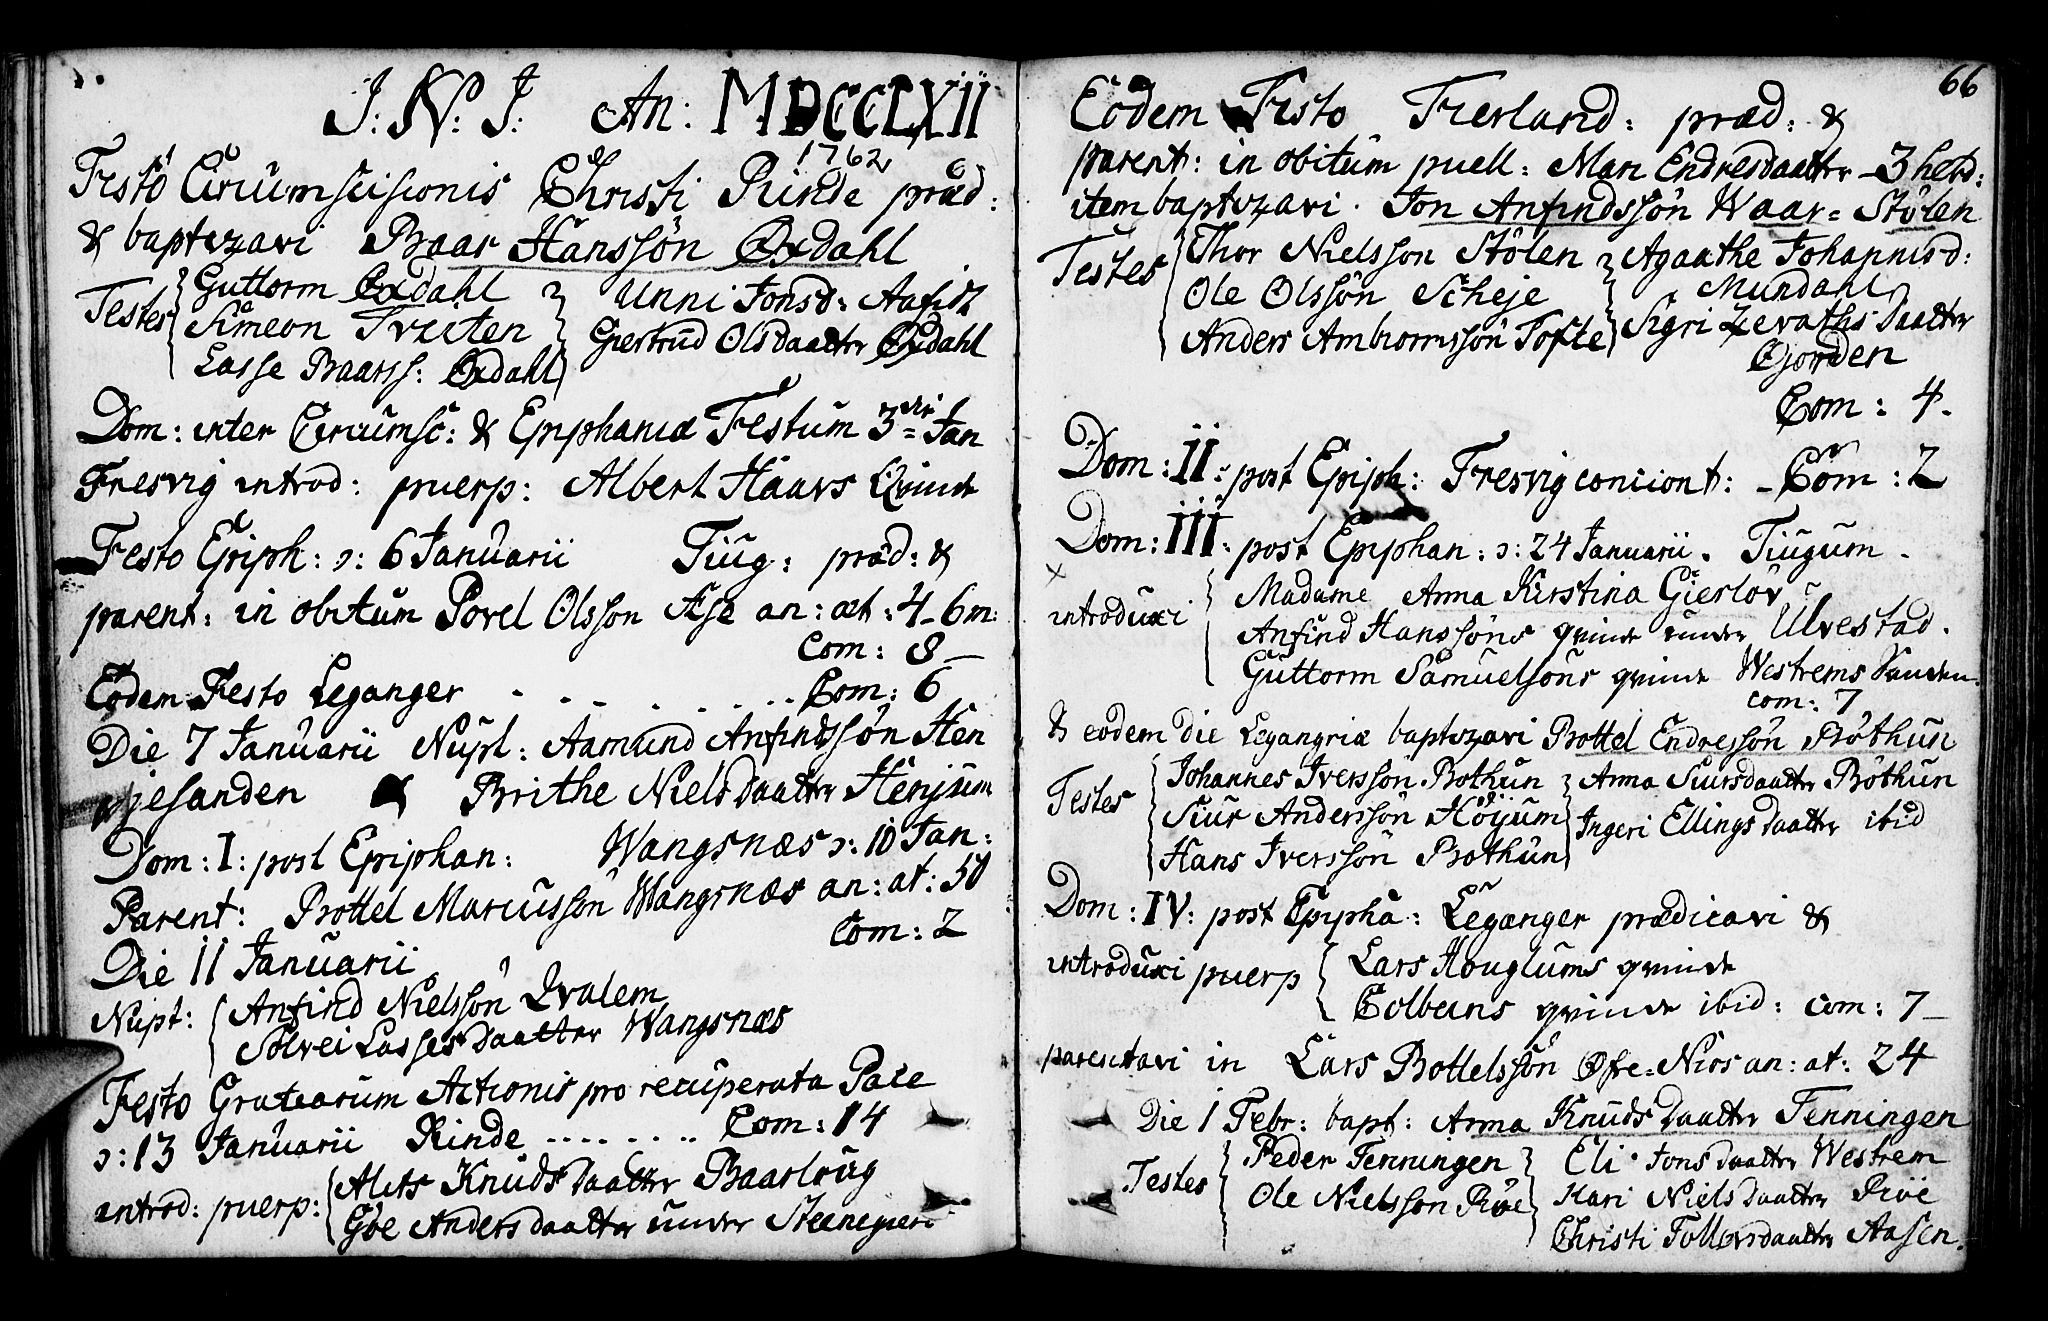 J: N: J: An: MDCCLXII
1762
Festo Circumscisionis Christi Rinde præd:
& baptizavi Baar Hanssön Øxdahl
Testes Guttorm Øxdahl Unni Jonsd: Aafedt
Simeon Tveiten Giertrud Olsdaatter Øxdahl
Lasse Baarss: Øxdahl
Dom: inter Circumsc: & Epiphaniæ Festum 3 Jan
Fresvig introd: puerp: Albert Haavs Qvinde
Festo Epiph: ɔ: 6 Januarii Tiug: præd: &
parent: in obitum Povel Olsson Ase an: æt: 4-6m:
Com: 8-
Eodem Festo Leganger - - - - - - - Com: 6
Die 7 Januarii Nupt: Aamund Anfindssön Hen
jesanden & Brithe Nielsdaatter Henjum
Dom: I: post Epiphan: Wangsnæs ɔ: 10 Jan:
Parent: Bottel Marcussön Wangsnæs an: æt: 50
Com: 2
Die 11 Januarii
Nupt: Anfind Nielssön Qvalem
Sølvei Lassesdaatter Wangsnæs
Festo Gratiarum Actionis pro recuperata Pace
ɔ: 13 Januarii Rinde . . . . . . . . Com: 14
introd: puerp: Alets Knudsdaatter Baarloug
Gøe Andersdaatter under Steenegierd
66
Eodem Festo Fierland: præd: &
parent: in obitum puell: Mari Endresdaatter - 3 hebd:
item baptizavi. Jon Anfindssön Waar= Stölen
Testes Thor Nielsson Stölen Agaathe Johannisd:
Ole Olssön Scheje Mundahl
Anders Ambiornssön Tofte Sigri Zevathsdaatter
Gjorden
Com: 4.
Dom: II: post Epiph: Fresvig conciont: - Com: 2
Dom: III: post Epiphan: ɔ: 24 Januarii. Tiugum.
introduxi Madame Anna Kirstina Gierlöv
Anfind Hanssöns qvinde under Ulvestad.
Guttorm Samuelsöns qvinde Westrems Sanden.
com: 7
& eodem die Legangriæ baptizavi Bottel Endressön Bøthun
Testes Johannes Iverssön Bothun Anna Siursdaatter Bøthun
Siur Anderssön Höyum Ingeri Ellingsdaatter ibid
Hans Iverssön Bothun
Dom: IV: post Epipha: Leganger prædicavi &
introduxi puerp Lars Houglums qvinde
Colbens qvinde ibid: com: 7-
parentavi in Lars Bottelssön Øfre=Nios an: æt: 24
Die 1 Febr: bapt: Anna Knudsdaatter Fenningen
Testes Peder Fenningen Eli Jonsdaatter Westrem
Ole Nielsson Riøe Kari Nielsdaatter Riøe
Christi Follevsdaatter Aasen.